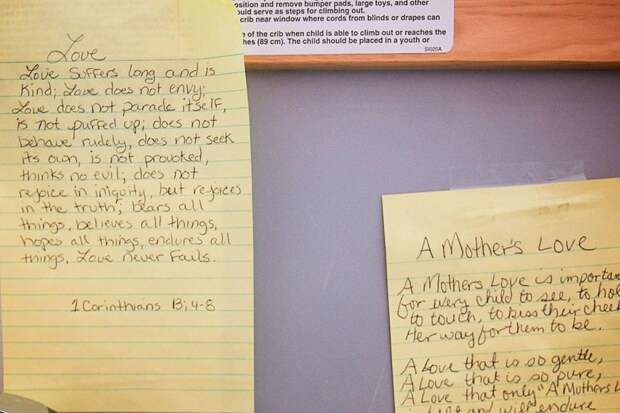 osition and remove bumper pads, large toys, and other
ould serve as steps for climbing out.
crib near window where cords from blinds or drapes can
e of the crib when child is able to climb out or reaches the
hes (89 cm). The child should be placed in a youth or
SI020A
Love
Love suffers long and is
kind; Love does not envy;
Love does not parade itself,
is not puffed up; does not
behave rudely, does not seek
its own, is not provoked,
thinks no evil; does not
rejoice in iniquity, but rejoices
in the truth; bears all
things, believes all things,
hopes all things, endures all
things, Love never fails.
1 Corinthians 13; 4-8
A Mother's Love
A Mothers Love is importan
for every child to see, to hol
to touch, to kiss their cheek
Her way for them to be.
A Love that is so gentle,
A Love that is so pure,
A Love that only "A Mothers L
and will endure